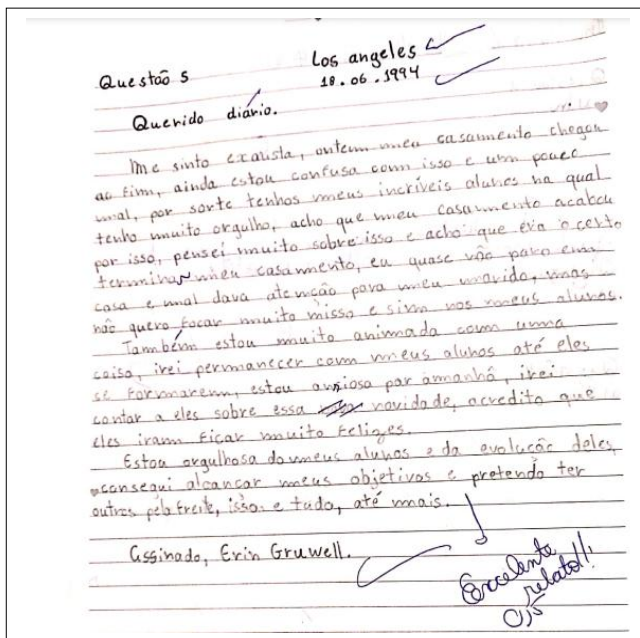 Questão 5
Los angeles
18.06.1994
Querido diário.
Me sinto exausta, ontem meu casamento chegou
ao fim, ainda estou confusa com isso e um pouco
mal, por sorte tenhos meus incríveis alunos na qual
tenho muito orgulho, acho que meu casamento acabou
por isso, pensei muito sobre isso e acho que era o certo
terminar meu casamento, eu quase não paro em
casa e mal dava atenção para meu marido, mas
não quero focar muito nisso e sim nos meus alunos.
Também estou muito animada com uma
coisa, irei permanecer com meus alunos até eles
se formarem, estou ansiosa por amanhã, irei
contar a eles sobre essa novidade, acredito que
eles iram ficar muito felizes.
Estou orgulhosa do meus alunos e da evolução deles,
consegui alcançar meus objetivos e pretendo ter
outros pela freite, isso e tudo, até mais.
Assinado, Erin Gruwell.
Excelente
relato!!
0,5